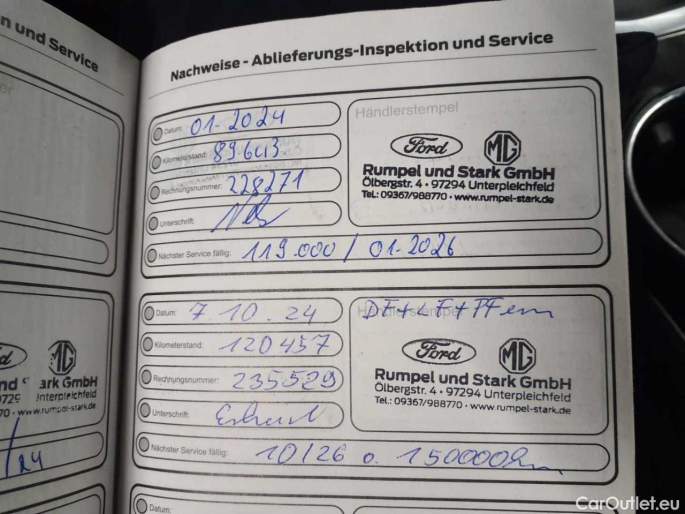 n und Service
Nachweise - Ablieferungs-Inspektion und Service
Datum: 01-2024
Kilometerstand: 89643
Rechnungsnummer: 228271
Unterschrift:
Nächster Service fällig: 119.000 / 01-2026
Händlerstempel
Ford MG
Rumpel und Stark GmbH
Ölbergstr. 4 • 97294 Unterpleichfeld
Tel.: 09367/988770 • www.rumpel-stark.de
Datum: 7 10. 24
Kilometerstand: 120457
Rechnungsnummer: 235529
Unterschrift:
Nächster Service fällig: 10/26 o. 150000km
DF+LF+PF
Händlerstempel
Ford MG
Rumpel und Stark GmbH
Ölbergstr. 4 • 97294 Unterpleichfeld
Tel.: 09367/988770 • www.rumpel-stark.de
MG
nd S ark GmbH
9729 Unterpleichfeld
70 • www.rumpel-stark.de
/24
Datum:
CarOutlet.eu